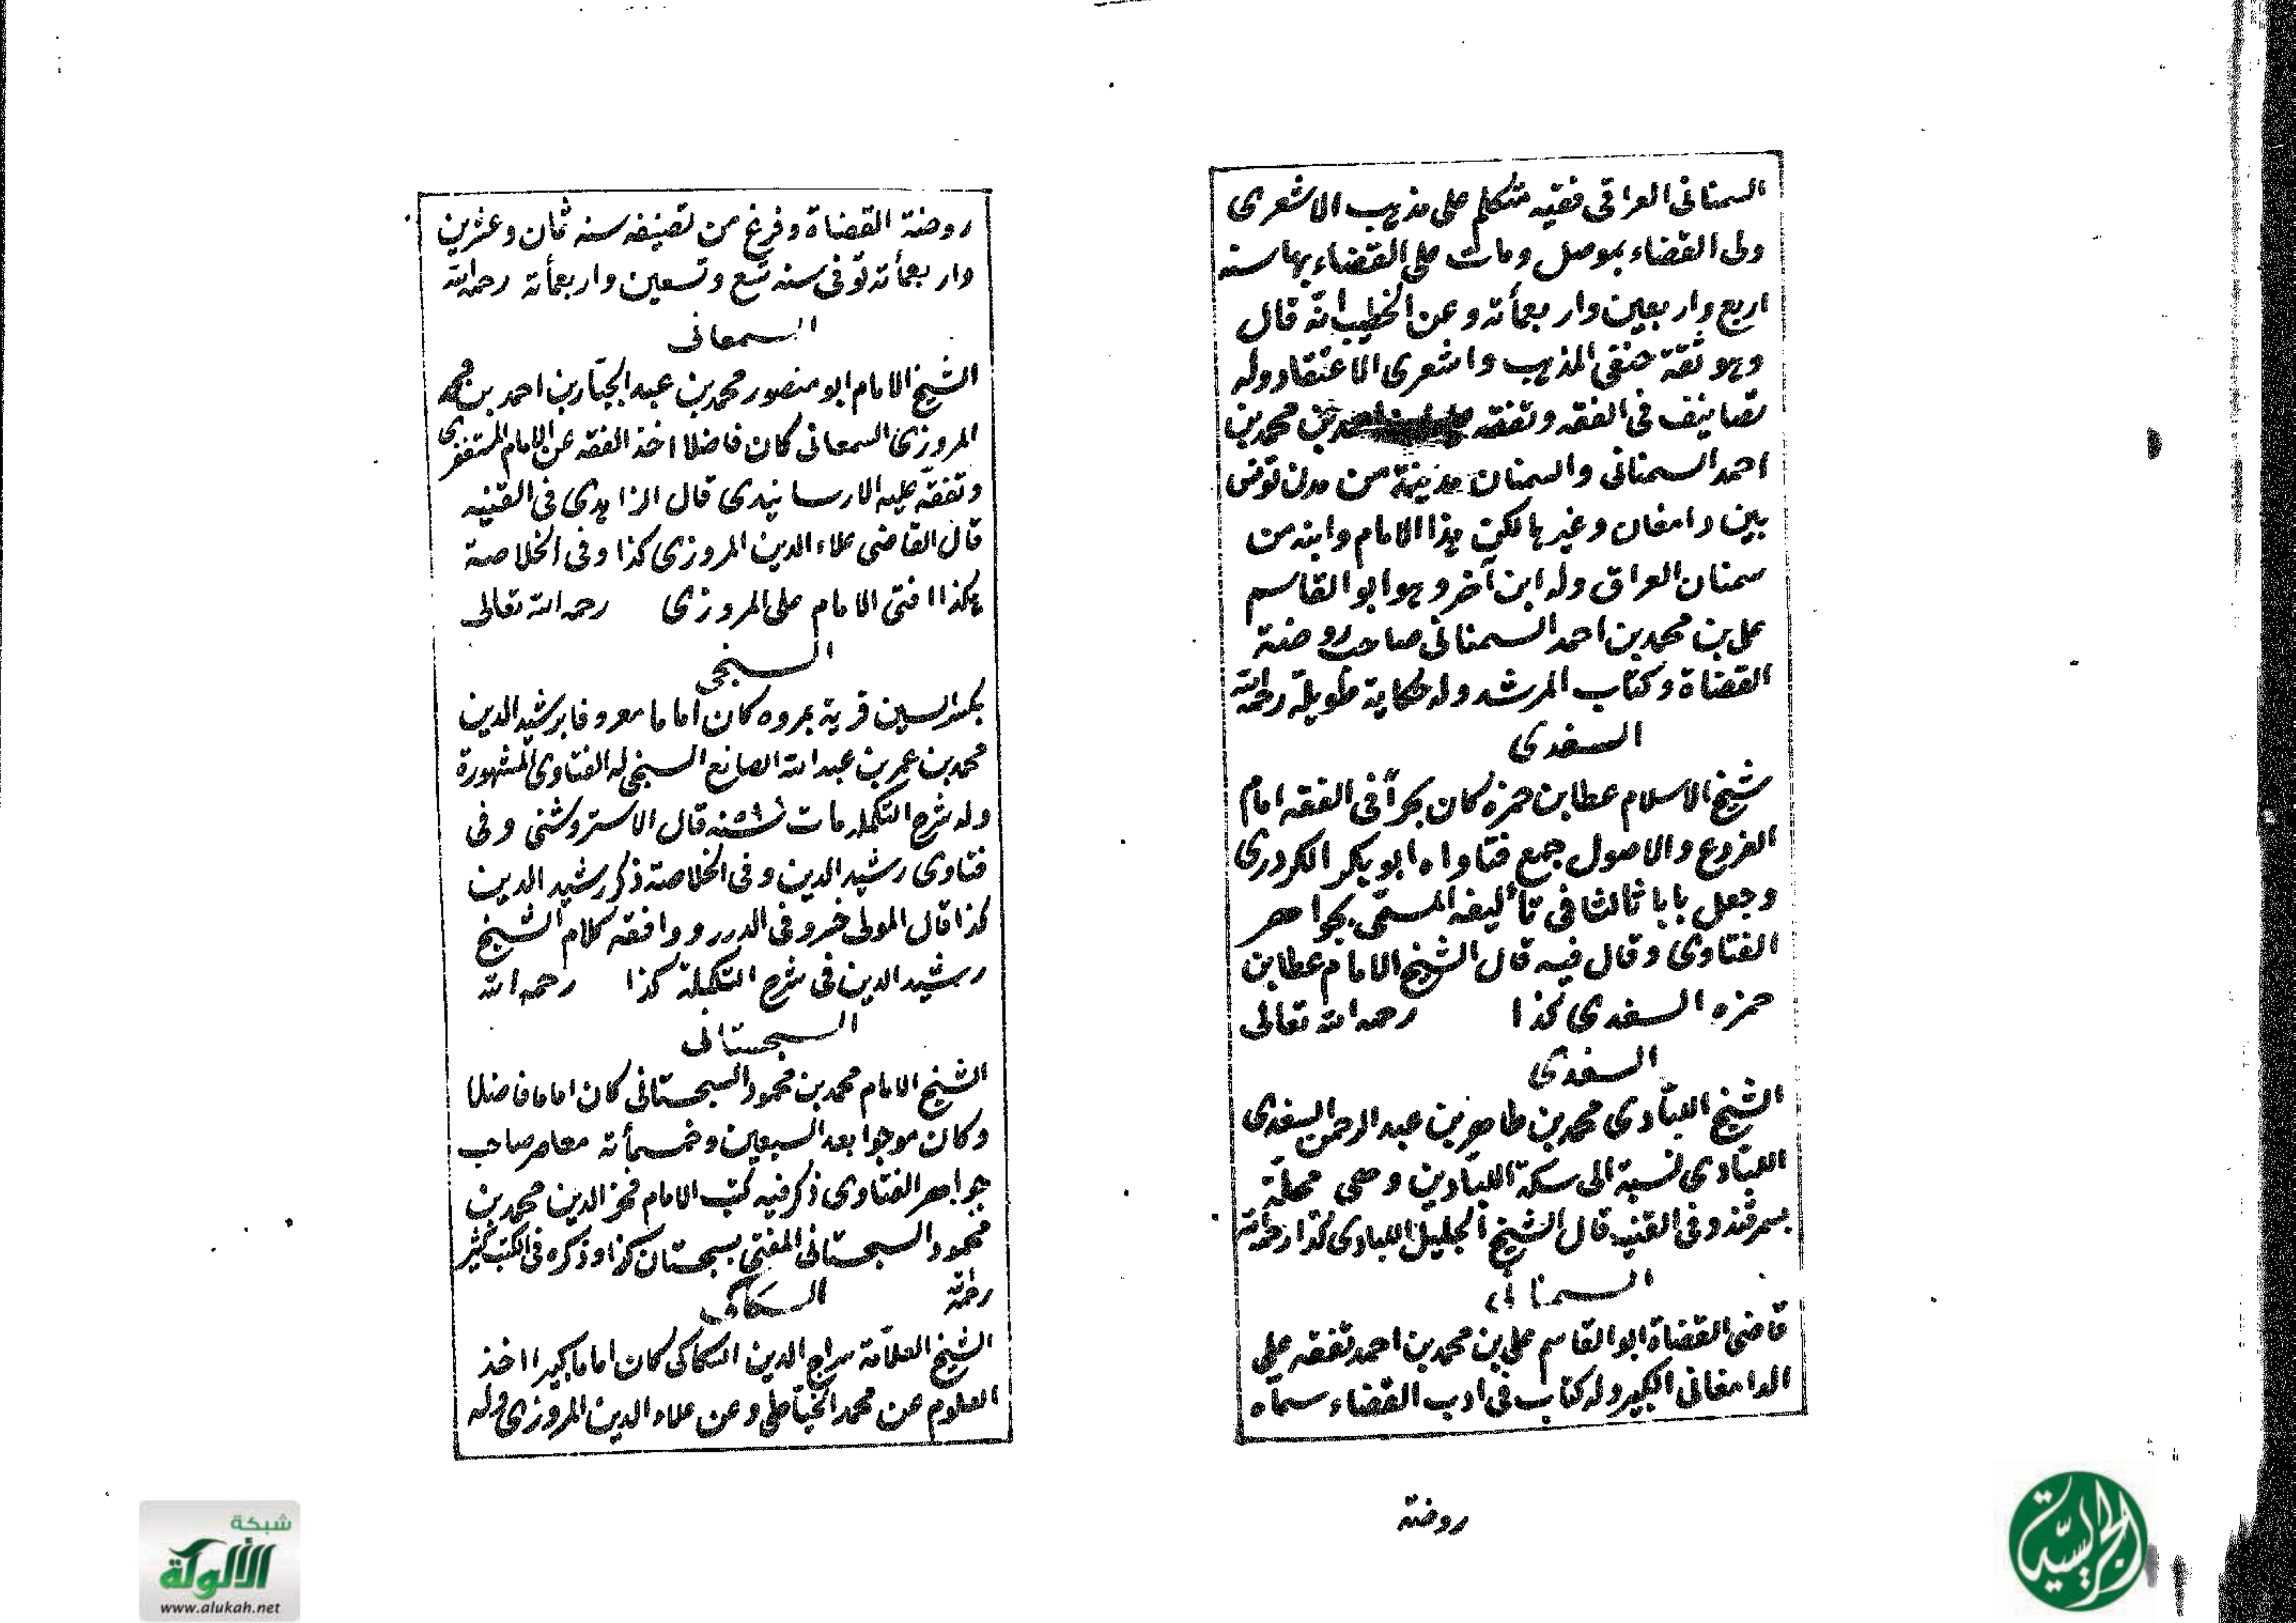 السمنانى العراقى فقيه متكلم على مذهب الاشعرى
ولى القضاء بموصل ومات على القضاء بها سنه
اربع واربعين واربعمأئة وعن الخطيب انه قال
وهو ثقة حنفى المذهب واشعرى الاعتقاد وله
تصانيف فى الفقه وتفقه احمد بن محمد بن
احمد السمنانى والسمنان مدينة من مدن تونس
بين دامغان وغيرها لكن هذا الامام وابنه من
سمنان العراق وله ابن آخر وهو ابو القاسم
على بن محمد بن احمد السمنانى صاحب روضة
القضاة وكتاب المرشد وله حكاية طويلة رحمه الله
السغدى
شيخ الاسلام عطا بن حمزه كان بحرآ فى الفقه امام
الفروع والاصول جمع فتاواه ابو بكر الكردرى
وجعل بابا ثالثا فى تأليفه المسمى بجواهر
الفتاوى وقال فيه قال الشيخ الامام عطا بن
حمزه السغدى كذا رحمه الله تعالى
السغدى
الشيخ اللبادى محمد بن طاهر بن عبد الرحمن السغدى
اللبادى نسبة الى سكة اللبادين وهى محلة
بسمرقند وفى القنيه قال الشيخ الجليل اللبادى كذا رحمه الله
السمنانى
قاضى القضاة ابو القاسم على بن محمد بن احمد تفقه على
الدامغانى الكبير وله كتاب فى ادب القضاء سماه
روضة
روضة القضاة وفرغ من تصنيفه سنه ثمان وعشرين
واربعمأئة توفى سنه تسع وتسعين واربعمأئة رحمه الله
السمعانى
الشيخ الامام ابو منصور محمد بن عبد الجبار بن احمد بن محمد
المروزى السمعانى كان فاضلا اخذ الفقه عن الامام المستغفرى
وتفقه عليه الارسابندى قال الزاهدى فى القنيه
قال القاضى علاء الدين المروزى كذا وفى الخلاصة
هكذا افتى الامام على المروزى رحمه الله تعالى
السنجى
بكسر السين قرية بمروه كان اماما معروفا برشيد الدين
محمد بن عمر بن عبد الله الصانع السنجى له الفتاوى المشهورة
وله شرح التكمله مات قال الاستروشنى وفى
فتاوى رشيد الدين وفى الخلاصة ذكر رشيد الدين
كذا قال المولى خسرو فى الدرر ووافقه كلام الشيخ
رشيد الدين فى شرح التكملة كذا رحمه الله
السجستانى
الشيخ الامام محمد بن محمود السجستانى كان اماما فاضلا
وكان موجوا بعد السبعين وخمسمأئة معاصر صاحب
جواهر الفتاوى ذكر فيه كتب الامام فخر الدين محمد بن
محمود السجستانى المفتى بسجستان كذا وذكره فى الكتب كثير
رحمه الله السكاكى
الشيخ العلامة سراج الدين السكاكى كان اماما كبيرا اخذ
العلوم عن محمد الخياطى وعن علاء الدين المروزى وله
شبكة
الألوكة
www.alukah.net